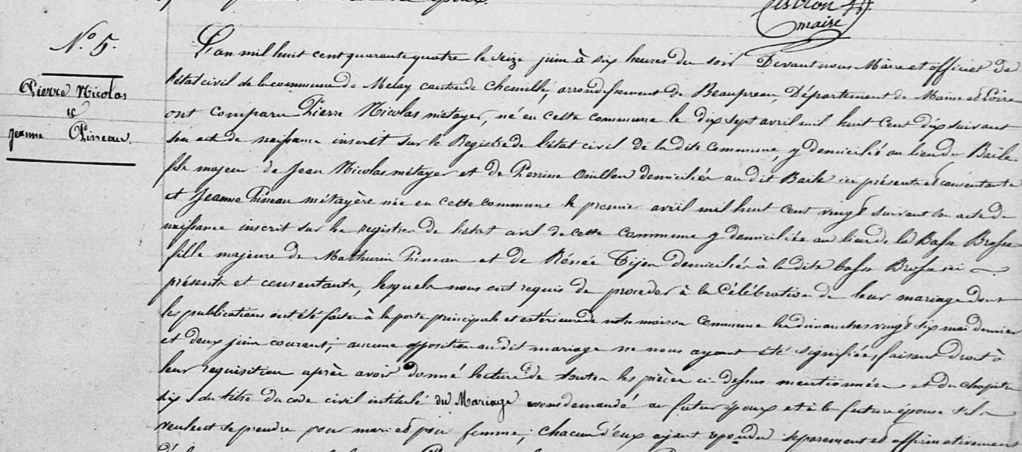 maire
N.º 5.
Pierre Nicolas
et
Jeanne Pineau.
L'an mil huit cent quarante quatre le seize juin à six heures du soir Devant nous Maire et officier de
l'état civil de la commune de Melay canton de Chemillé, arrondissement de Beaupreau, Département de Maine et Loire
ont comparu Pierre Nicolas métayer, né en cette commune le dix sept avril mil huit Cent dix suivant
son acte de naissance inscrit sur le Registre de l'état civil de la dite Commune, y domicilié au lieu du Baile
fils majeur de Jean Nicolas métayer et de Perrine domiciliés au dit Baile ici présents et consentants
et Jeanne Pineau métayère née en cette commune le premier avril mil huit cent vingt suivant son acte de
naissance inscrit sur le registre de l'état civil de cette Commune y domiciliée au lieu de la Basse Brosse
fille majeure de Mathurin Pineau et de Rénée domiciliés à la dite basse Brosse ici
présents et consentants, lesquels nous ont requis de procéder à la Célébration de leur mariage dont
les publications ont été faites à la porte principale et extérieure de notre maison Commune les dimanches vingt six mai dernier
et deux juin courant; aucune opposition au dit mariage ne nous ayant été signifiée, faisant droit à
leur requisition après avoir donné lecture de toutes les pièces ci dessus mentionnées et du chapitre
six du titre du code civil intitulé du Mariage avons demandé au futur époux et à la future épouse s'ils
veulent se prendre pour mari et pour femme; chacun d'eux ayant répondu séparement et affirmativement